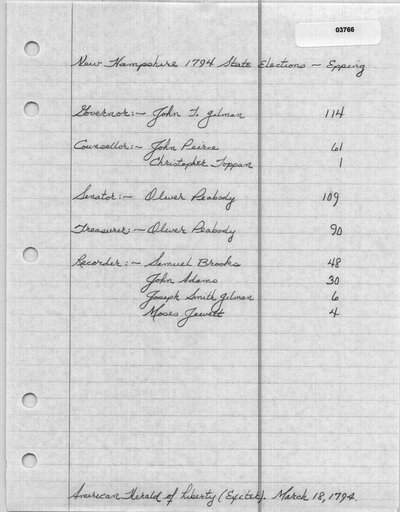 03766
New Hampshire 1794 State Elections – Epping
Governor:– John T. Gilman 114
Counsellor:– John Peirce 61
Christopher Toppan 1
Senator:– Oliver Peabody 109
Treasurer:– Oliver Peabody 90
Recorder:– Samuel Brooks 48
John Adams 30
Joseph Smith Gilman 6
Moses Jewett 4
American Herald of Liberty (Exeter). March 18, 1794.